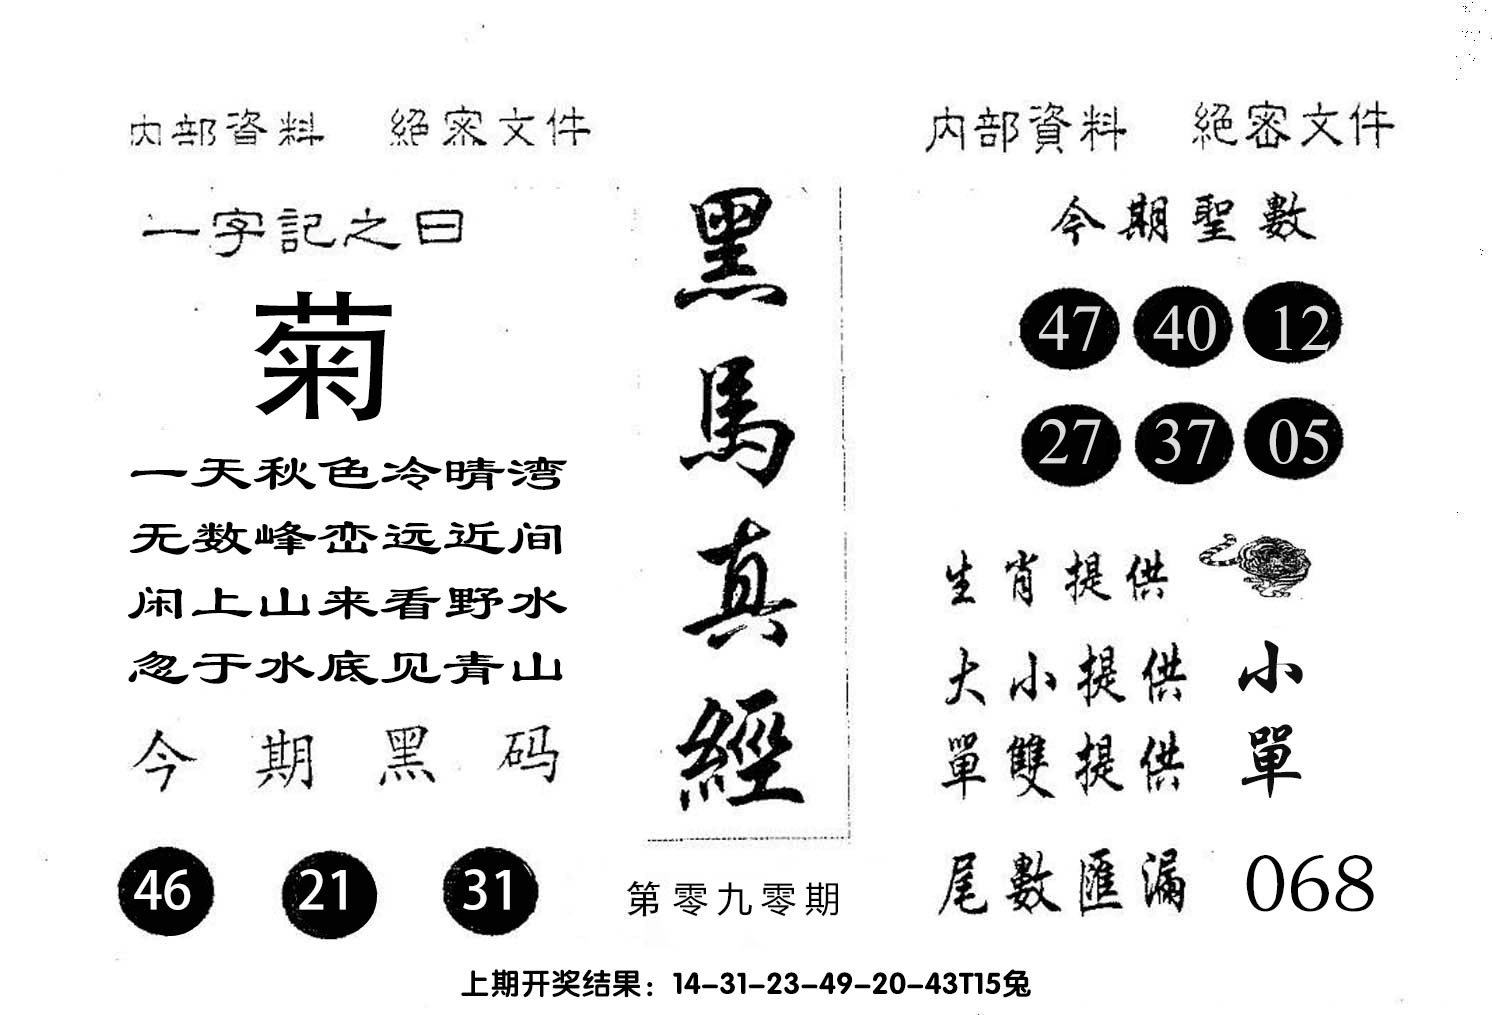 内部資料 絕密文件
一字記之曰
菊
一天秋色冷晴湾
无数峰峦远近间
闲上山来看野水
忽于水底见青山
今期黑码
46 21 31
黑馬真經
第零九零期
内部資料 絕密文件
今期聖數
47 40 12
27 37 05
生肖提供
大小提供 小
單雙提供 單
尾數匯漏 068
上期开奖结果：14-31-23-49-20-43T15兔